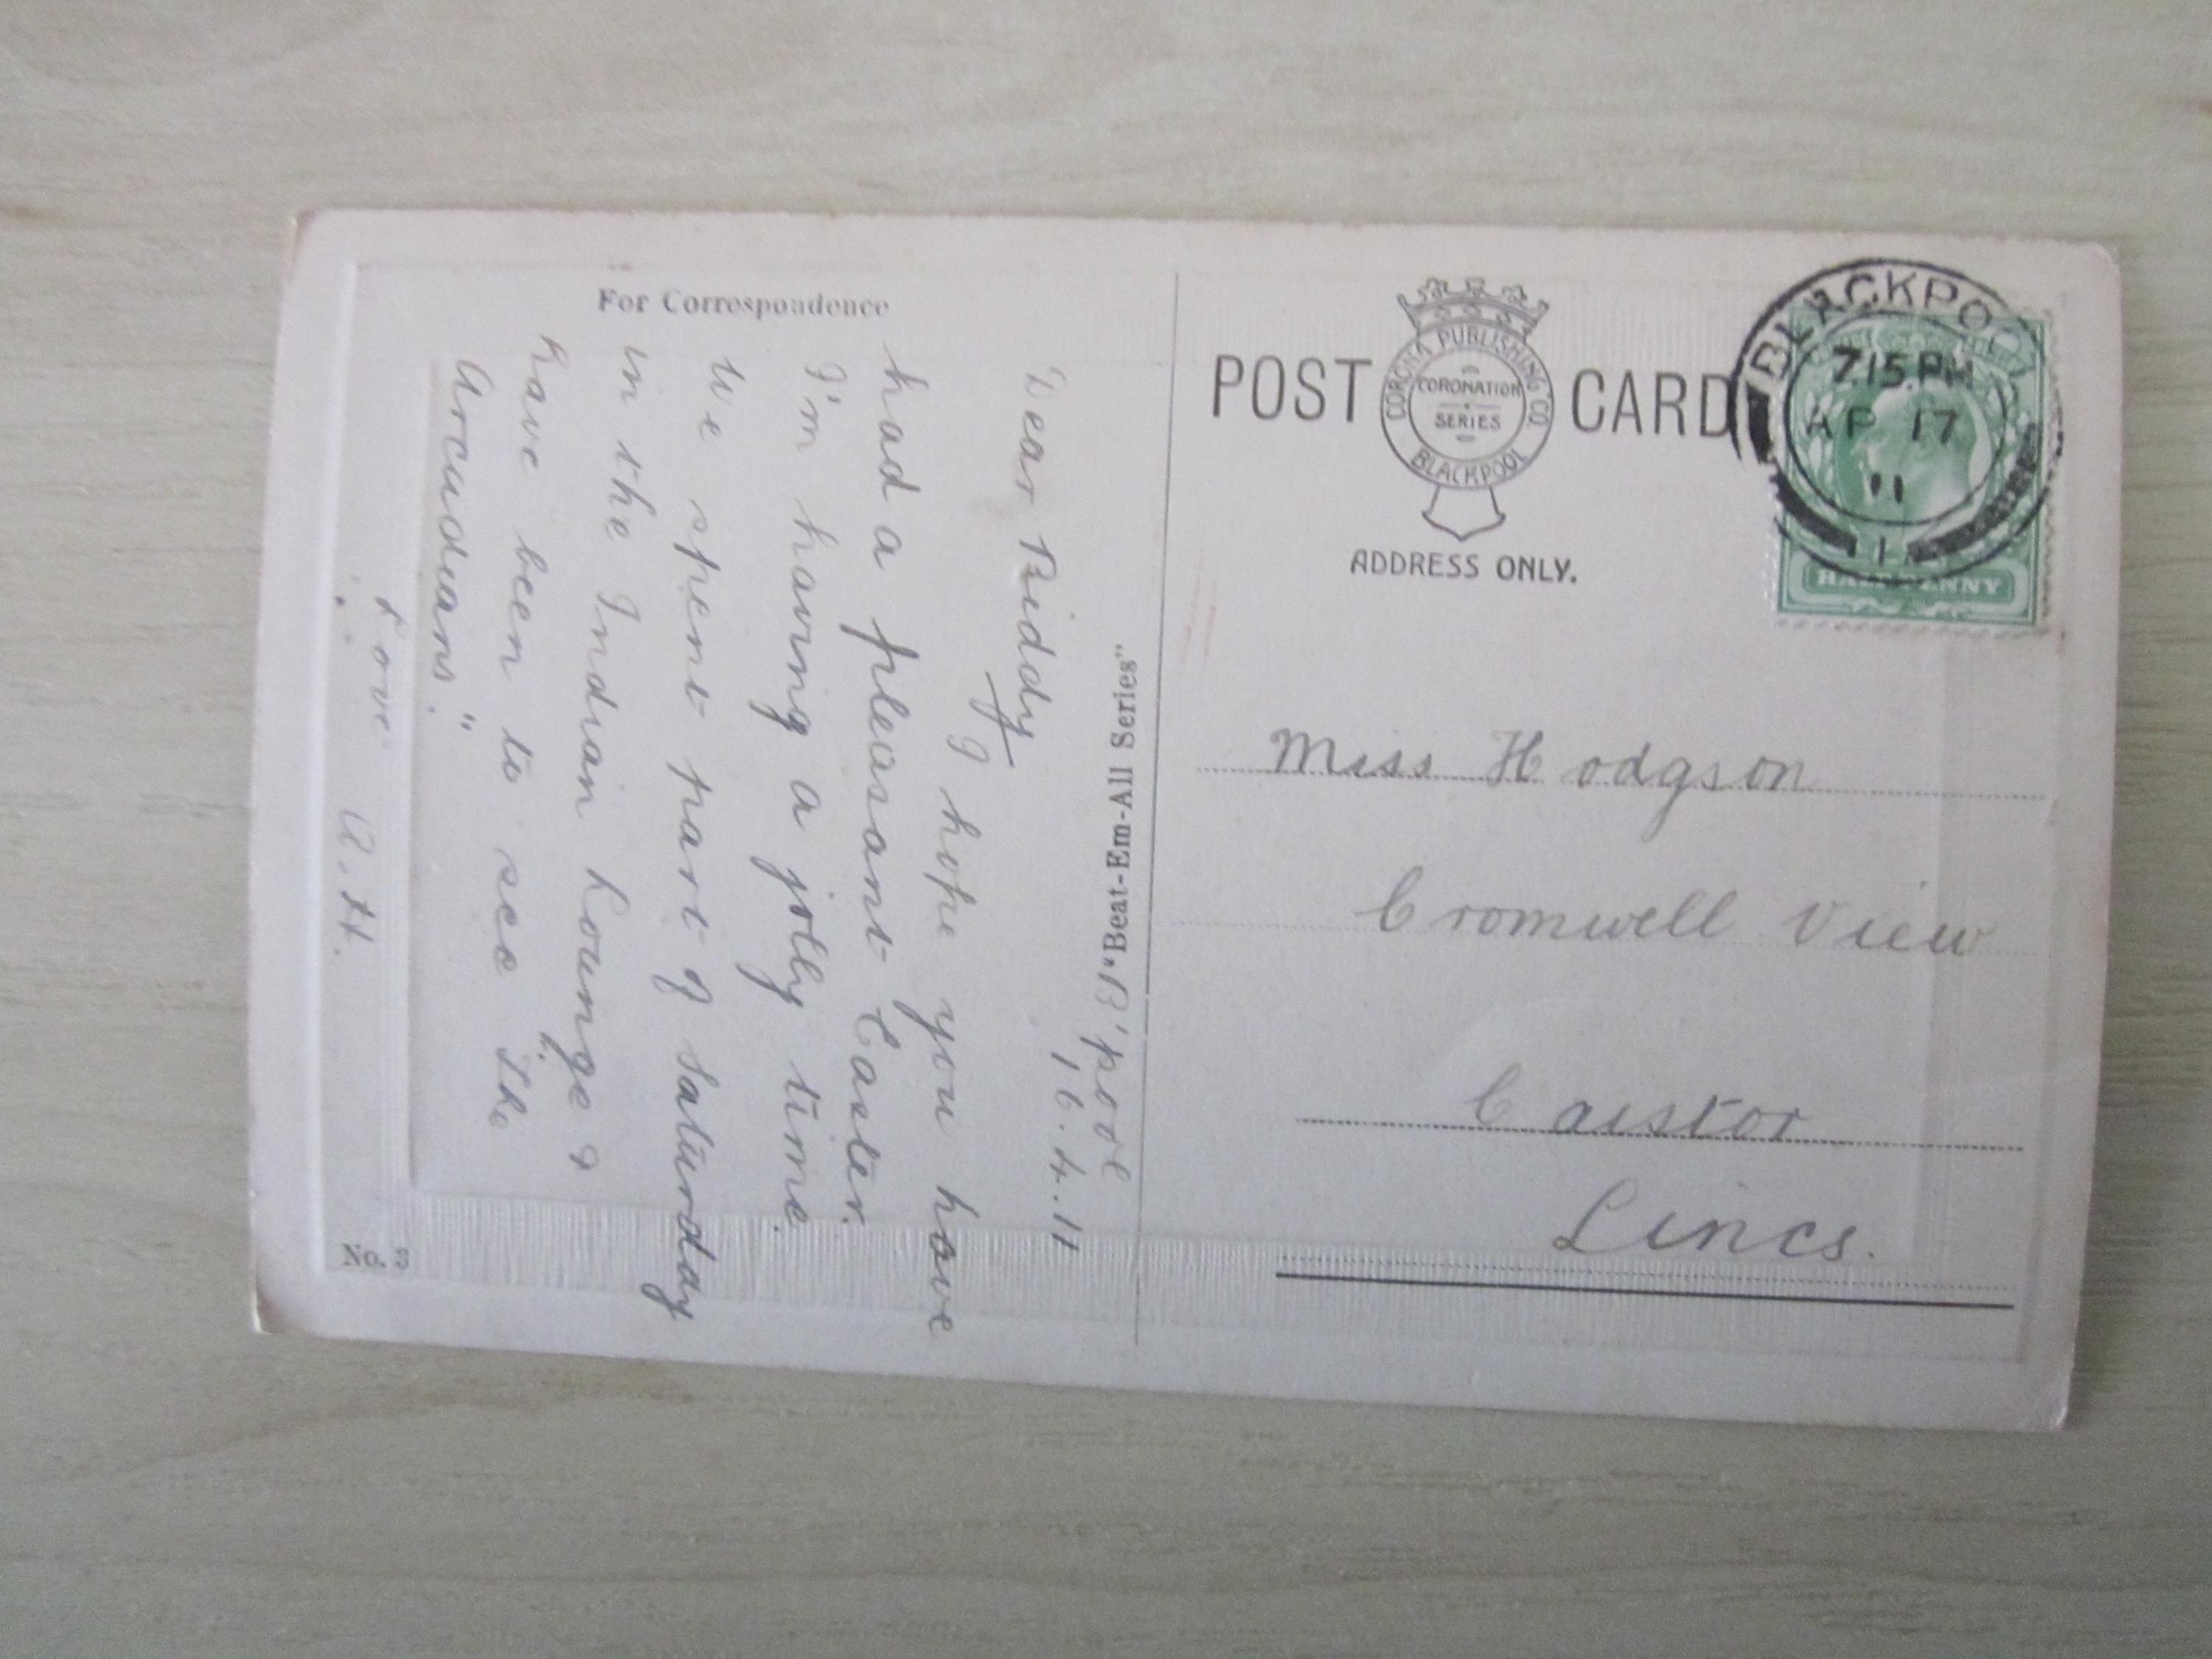 For Correspondence
POST CARD
CORONA PUBLISHING CO.
CORONATION
SERIES
BLACKPOOL
ADDRESS ONLY.
BLACKPOOL
7.15 PM
AP 17
11
HALFPENNY
"Beat-Em-All Series"
B'pool
16.4.11
Dear Biddy
I hope you have
had a pleasant Easter.
I'm having a jolly time.
We spent part of Saturday
in the Indian Lounge &
have been to see "The
Arcadians".
Love
A. H.
No. 3
Miss Hodgson
Cromwell View
Caistor
Lincs.